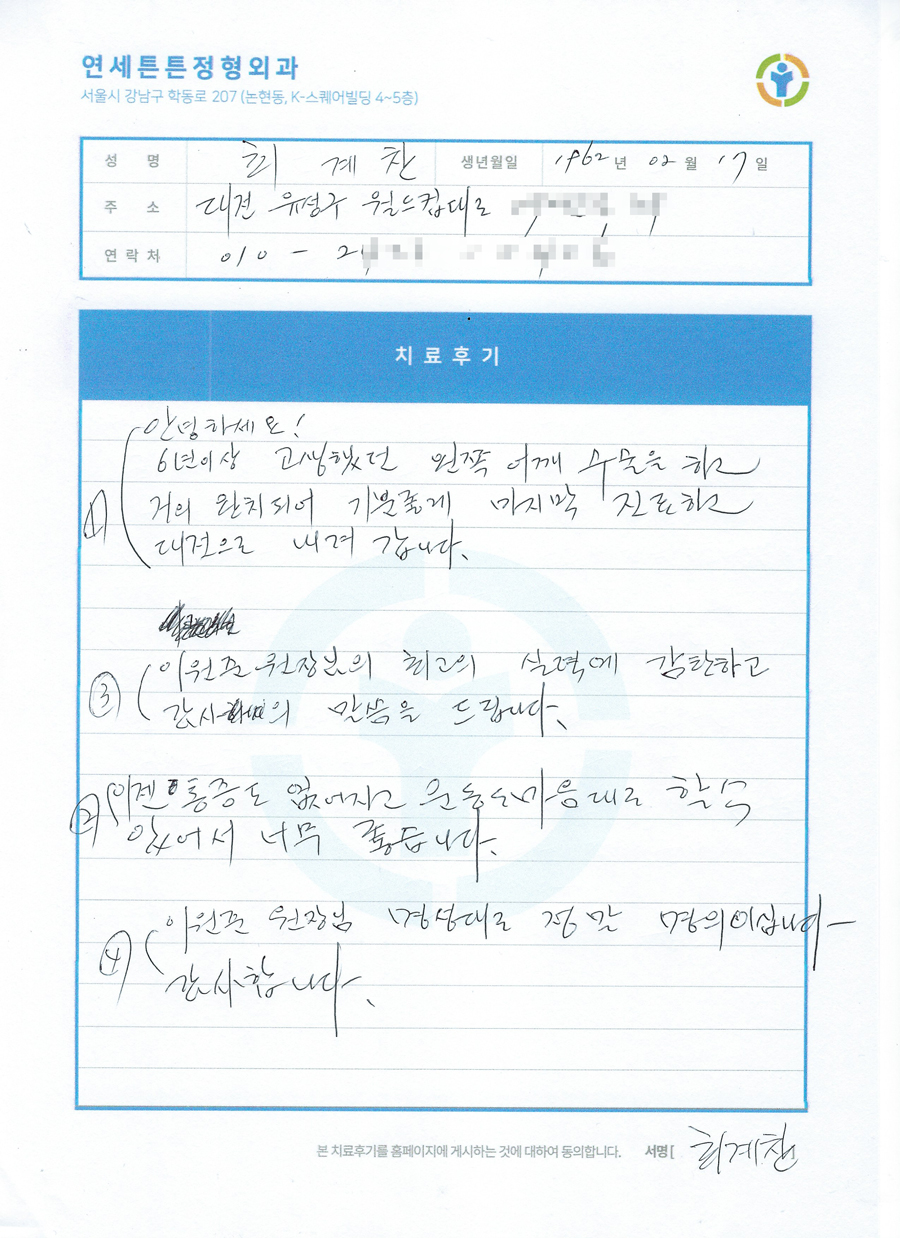 연세튼튼정형외과
서울시 강남구 학동로 207 (논현동, K-스퀘어빌딩 4~5층)
성 명 최 계 찬 생년월일 1962 년 02 월 17 일
주 소 대전 유성구 월드컵대로
연락처 010 - 2
치료후기
안녕하세요!
6년이상 고생했던 왼쪽 어깨 수술을 하고
1) 거의 완치되어 기분좋게 마지막 진료하고
대전으로 내려 갑니다.
이원준 원장님의 최고의 실력에 감탄하고
③ 감사의 말씀을 드립니다.
② 이젠 통증도 없어지고 운동도 마음대로 할수
있어서 너무 좋습니다.
이원준 원장님 명성대로 정말 명의이십니다
④ 감사합니다.
본 치료후기를 홈페이지에 게시하는 것에 대하여 동의합니다. 서명 [ 최계찬